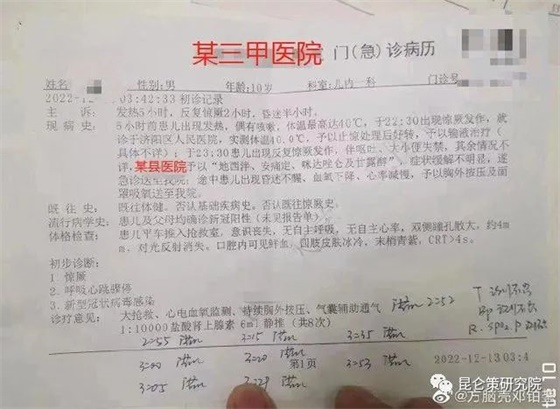 某三甲医院 门（急）诊病历
姓名 性别:男 年龄:10岁 科室:儿内一科 门诊号
2022-12 03:42:33 初诊记录
主 诉： 发热5小时，反复惊厥2小时，昏迷半小时。
现 病 史： 5小时前患儿出现发热，偶有咳嗽，体温最高达40℃，于22:30出现惊厥发作，就
诊于济阳区人民医院，实测体温40.0℃，予以止惊处理后好转，予以输液治疗（
具体不详）；于23:30患儿出现反复惊厥发作，伴呕吐、大小便失禁，其余情况不
详，某县医院予以“地西泮、安痛定、咪达唑仑及甘露醇”，症状缓解不明显，遂
急诊送至我院，途中患儿出现昏迷不醒、血氧下降、心率减慢，予以胸外按压及面
罩吸氧送至我院。
既 往 史： 既往体健。否认基础疾病史。否认既往惊厥史。
流行病学史： 患儿及父母均确诊新冠阳性（未见报告单）。
体格检查： 患儿平车推入抢救室，意识丧失，无自主呼吸，无自主心率，双侧瞳孔散大，约4m
m，对光反射消失。口腔内可见鲜血，四肢皮肤冰冷，末梢青紫，CRT>4s。
初步诊断：
1 惊厥
2 呼吸心跳骤停
3 新型冠状病毒感染
诊疗意见： 大抢救、心电血氧监测、持续胸外按压、气囊辅助通气
1:10000盐酸肾上腺素 6ml 静推（共8次）
2:52
2:55 3:15 3:35
3:20 第1页 3:53 2022-12-13 03:4
3:05
昆仑策研究院
@方脑壳邓铂鋆